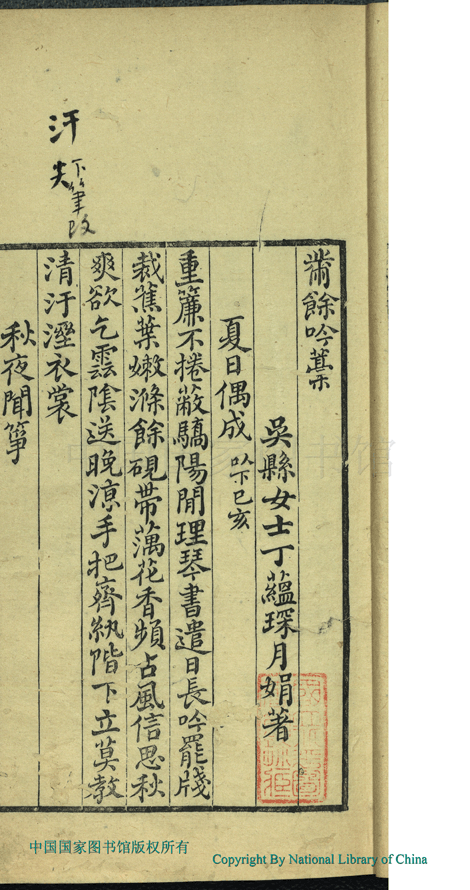 汗
夫下筆改
黹餘吟藁
吳縣女士丁蘊琛月娟著
夏日偶成 以下己亥
重簾不捲蔽驕陽閒理琴書遣日長吟罷牋
裁蕉葉嫩滌餘硯帶藕花香頻占風信思秋
爽欲乞雲陰送晚涼手把齊紈階下立莫敎
清汙溼衣裳
秋夜聞箏
中国国家图书馆版权所有
Copyright By National Library of China